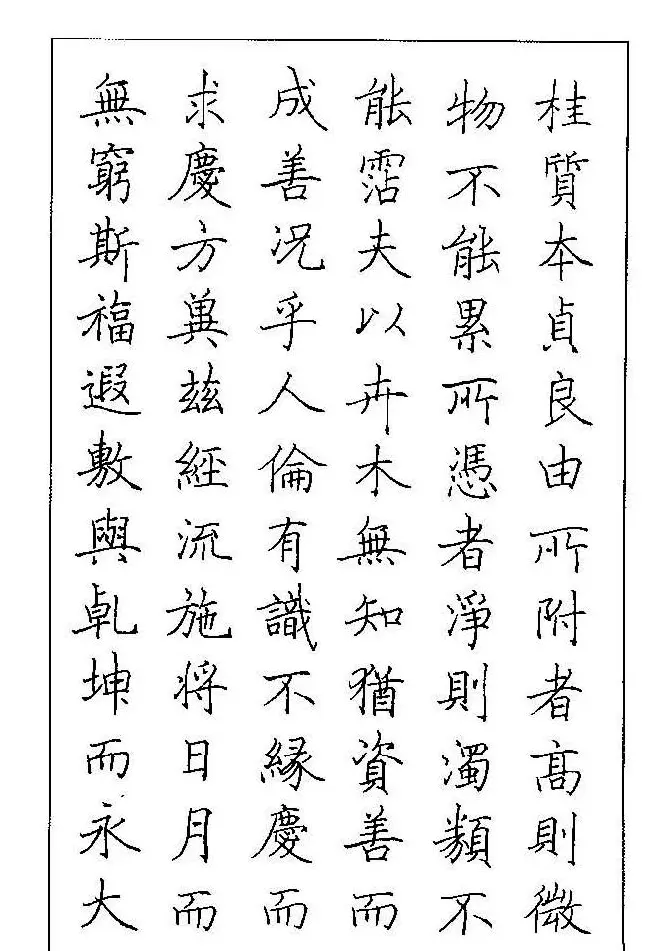 桂質本貞良由所附者高則微
物不能累所憑者淨則濁類不
能霑夫以卉木無知猶資善而
成善況乎人倫有識不緣慶而
求慶方冀茲經流施將日月而
無窮斯福遐敷與乹坤而永大